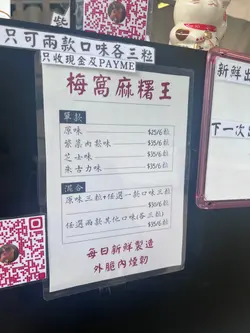 紫
只可兩款口味各三粒
只收現金及PAYME
梅窩麻糬王
單款
原味 $25/6粒
紫菜肉鬆味 $35/6粒
芝士味 $35/6粒
朱古力味 $35/6粒
混合
原味三粒+任選一款口味三粒
$30/6粒
任選兩款其他口味(各三粒)
$35/6粒
每日新鮮製造
外脆內煙韌
新鮮出
下一次出